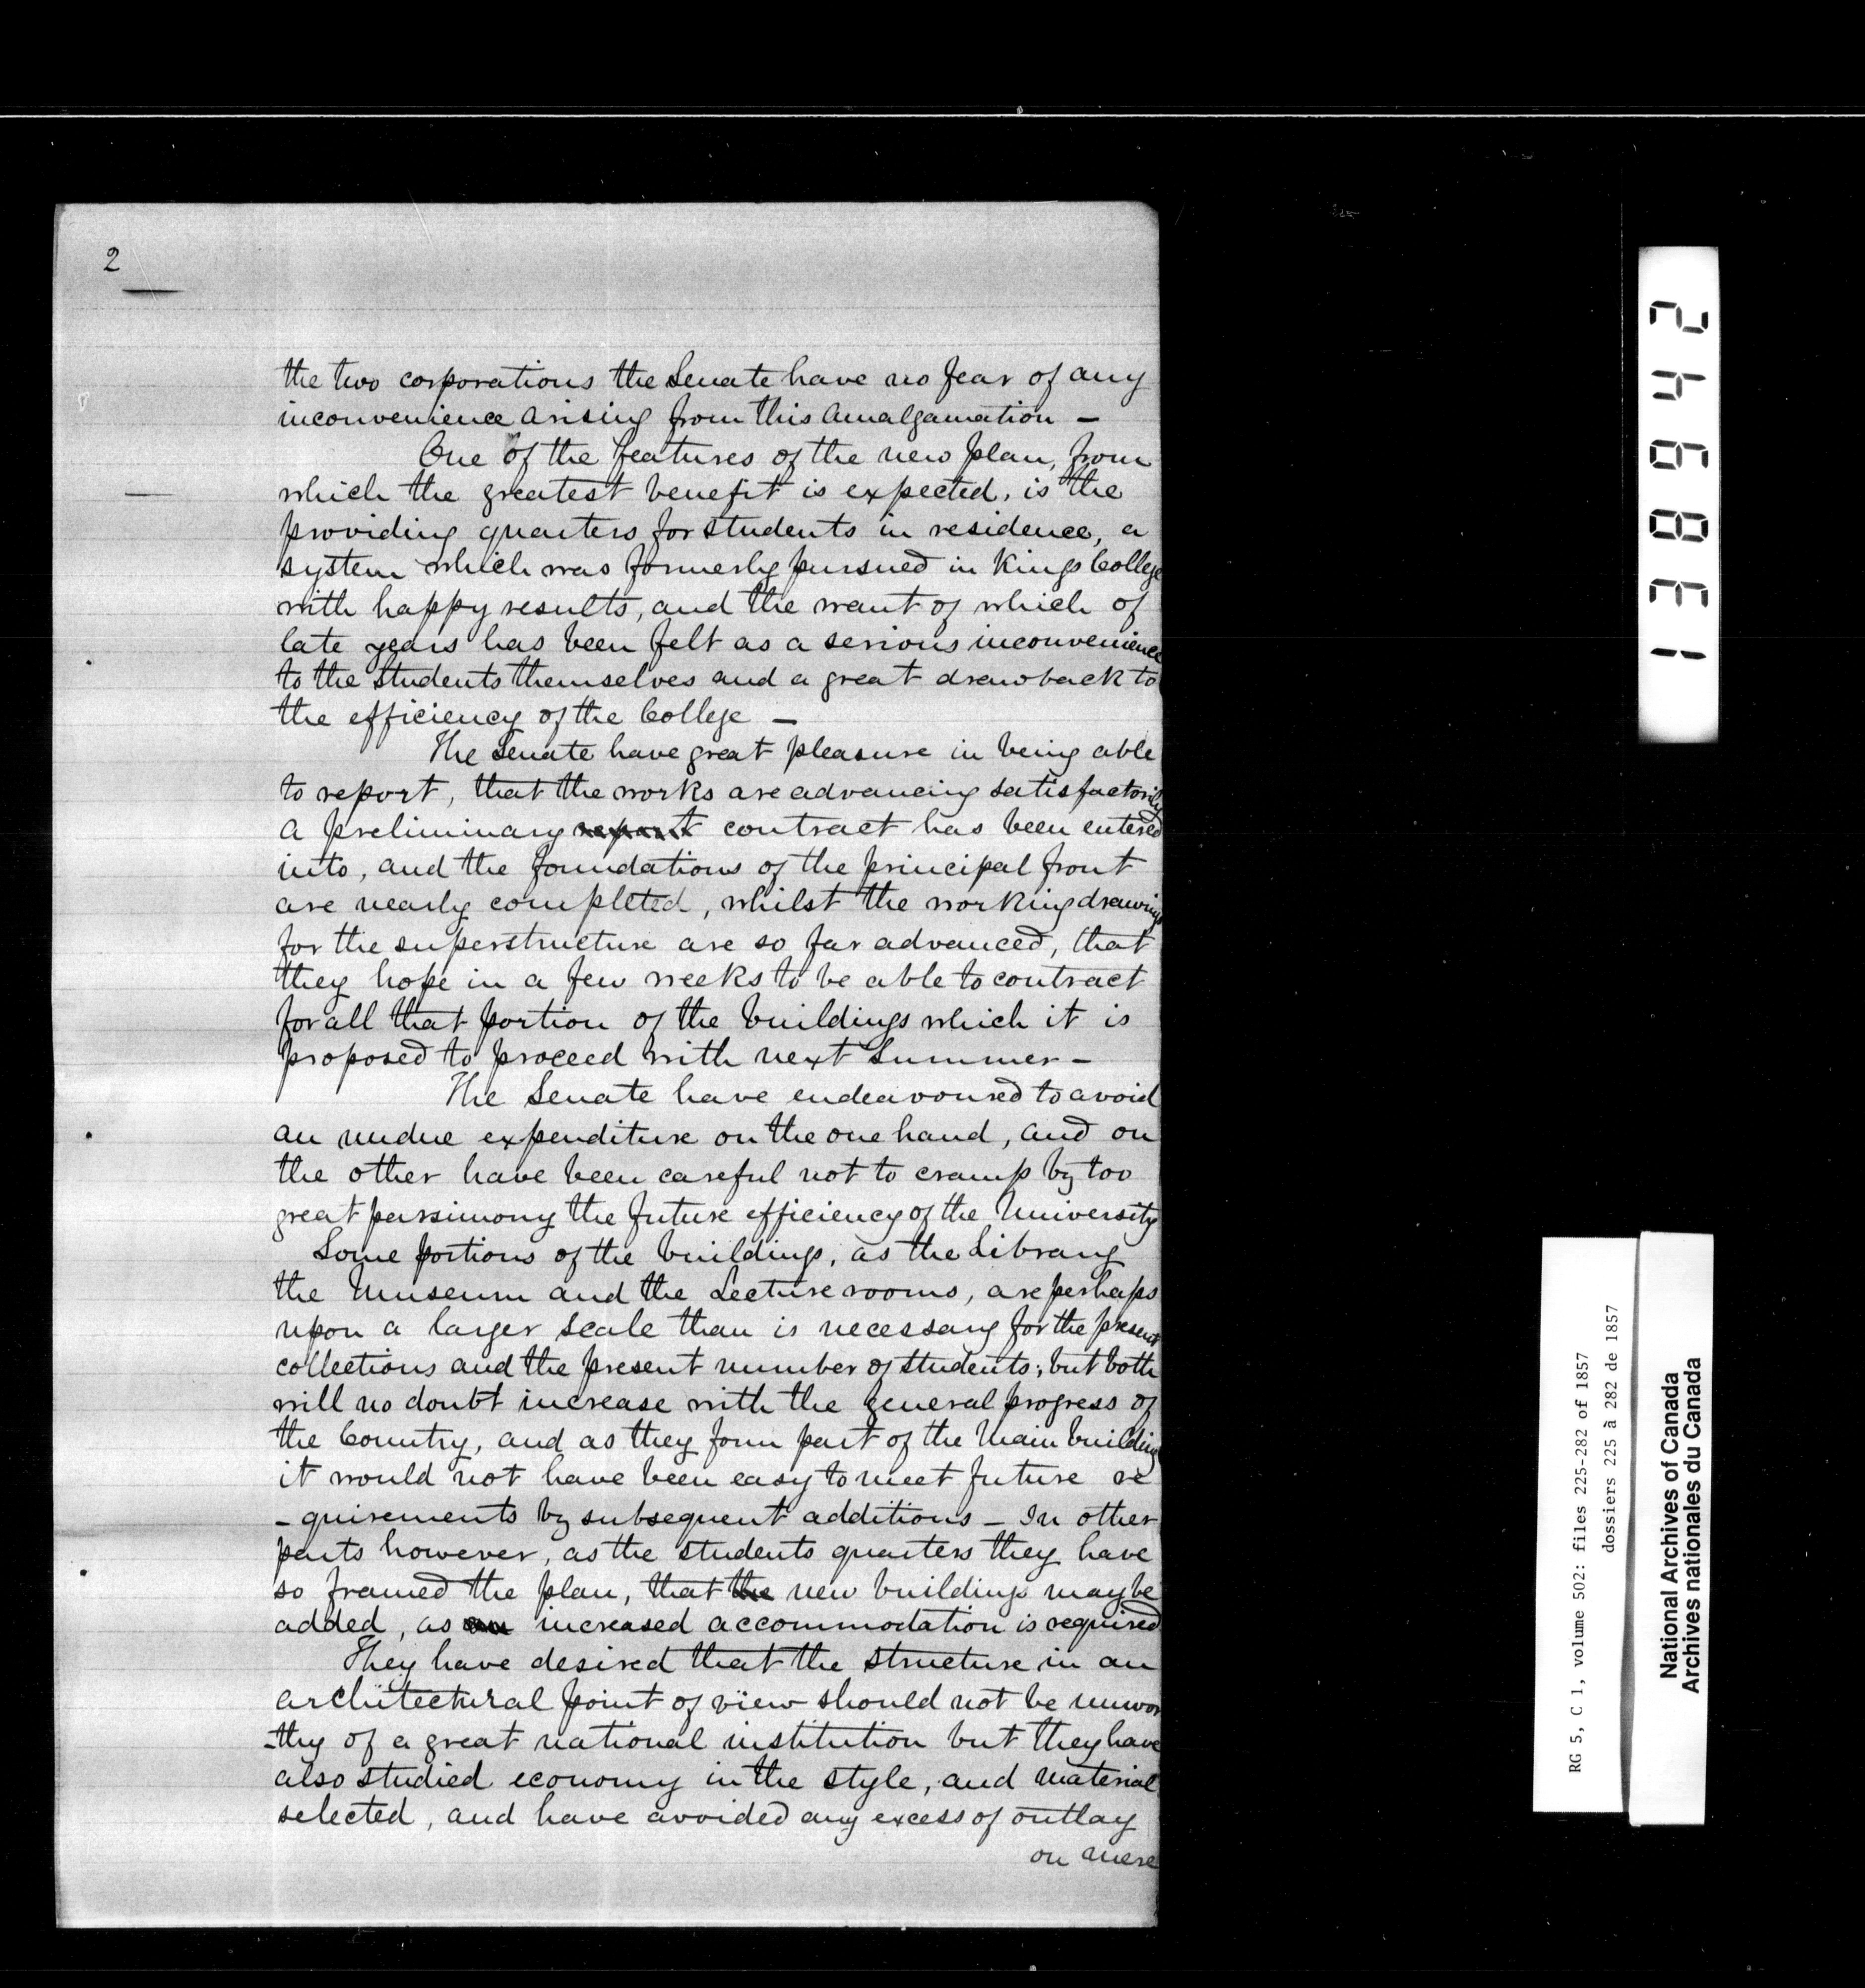 2
the two corporations the Senate have no fear of any
inconvenience arising from this Amalgamation –
One of the features of the new plan, from
which the greatest benefit is expected, is the
providing quarters for students in residence, a
system which was formerly pursued in Kings College
with happy results, and the want of which of
late years has been felt as a serious inconvenience
to the students themselves and a great drawback to
the efficiency of the College –
The Senate have great pleasure in being able
to report, that the works are advancing satisfactorily
A preliminary report contract has been entered
into, and the foundations of the principal front
are nearly completed, whilst the working drawings
for the superstructure are so far advanced, that
they hope in a few weeks to be able to contract
for all that portion of the buildings which it is
proposed to proceed with next Summer –
The Senate have endeavoured to avoid
an undue expenditure on the one hand, and on
the other have been careful not to cramp by too
great parsimony the future efficiency of the University
Some portions of the buildings, as the Library
the Museum and the Lecture rooms, are perhaps
upon a larger scale than is necessary for the present
collections and the present number of students; but both
will no doubt increase with the general progress of
the Country, and as they form part of the Main building
it would not have been easy to meet future re
-quirements by subsequent additions – In other
parts however, as the students quarters they have
so framed the plan, that the new buildings may be
added, as an increased accommodation is required
They have desired that the structure in an
architectural point of view should not be unwor
-thy of a great national institution but they have
also studied economy in the style, and material
selected, and have avoided any excess of outlay
on mere
138942
RG 5, C 1, volume 502: files 225-282 of 1857
dossiers 225 à 282 de 1857
National Archives of Canada
Archives nationales du Canada